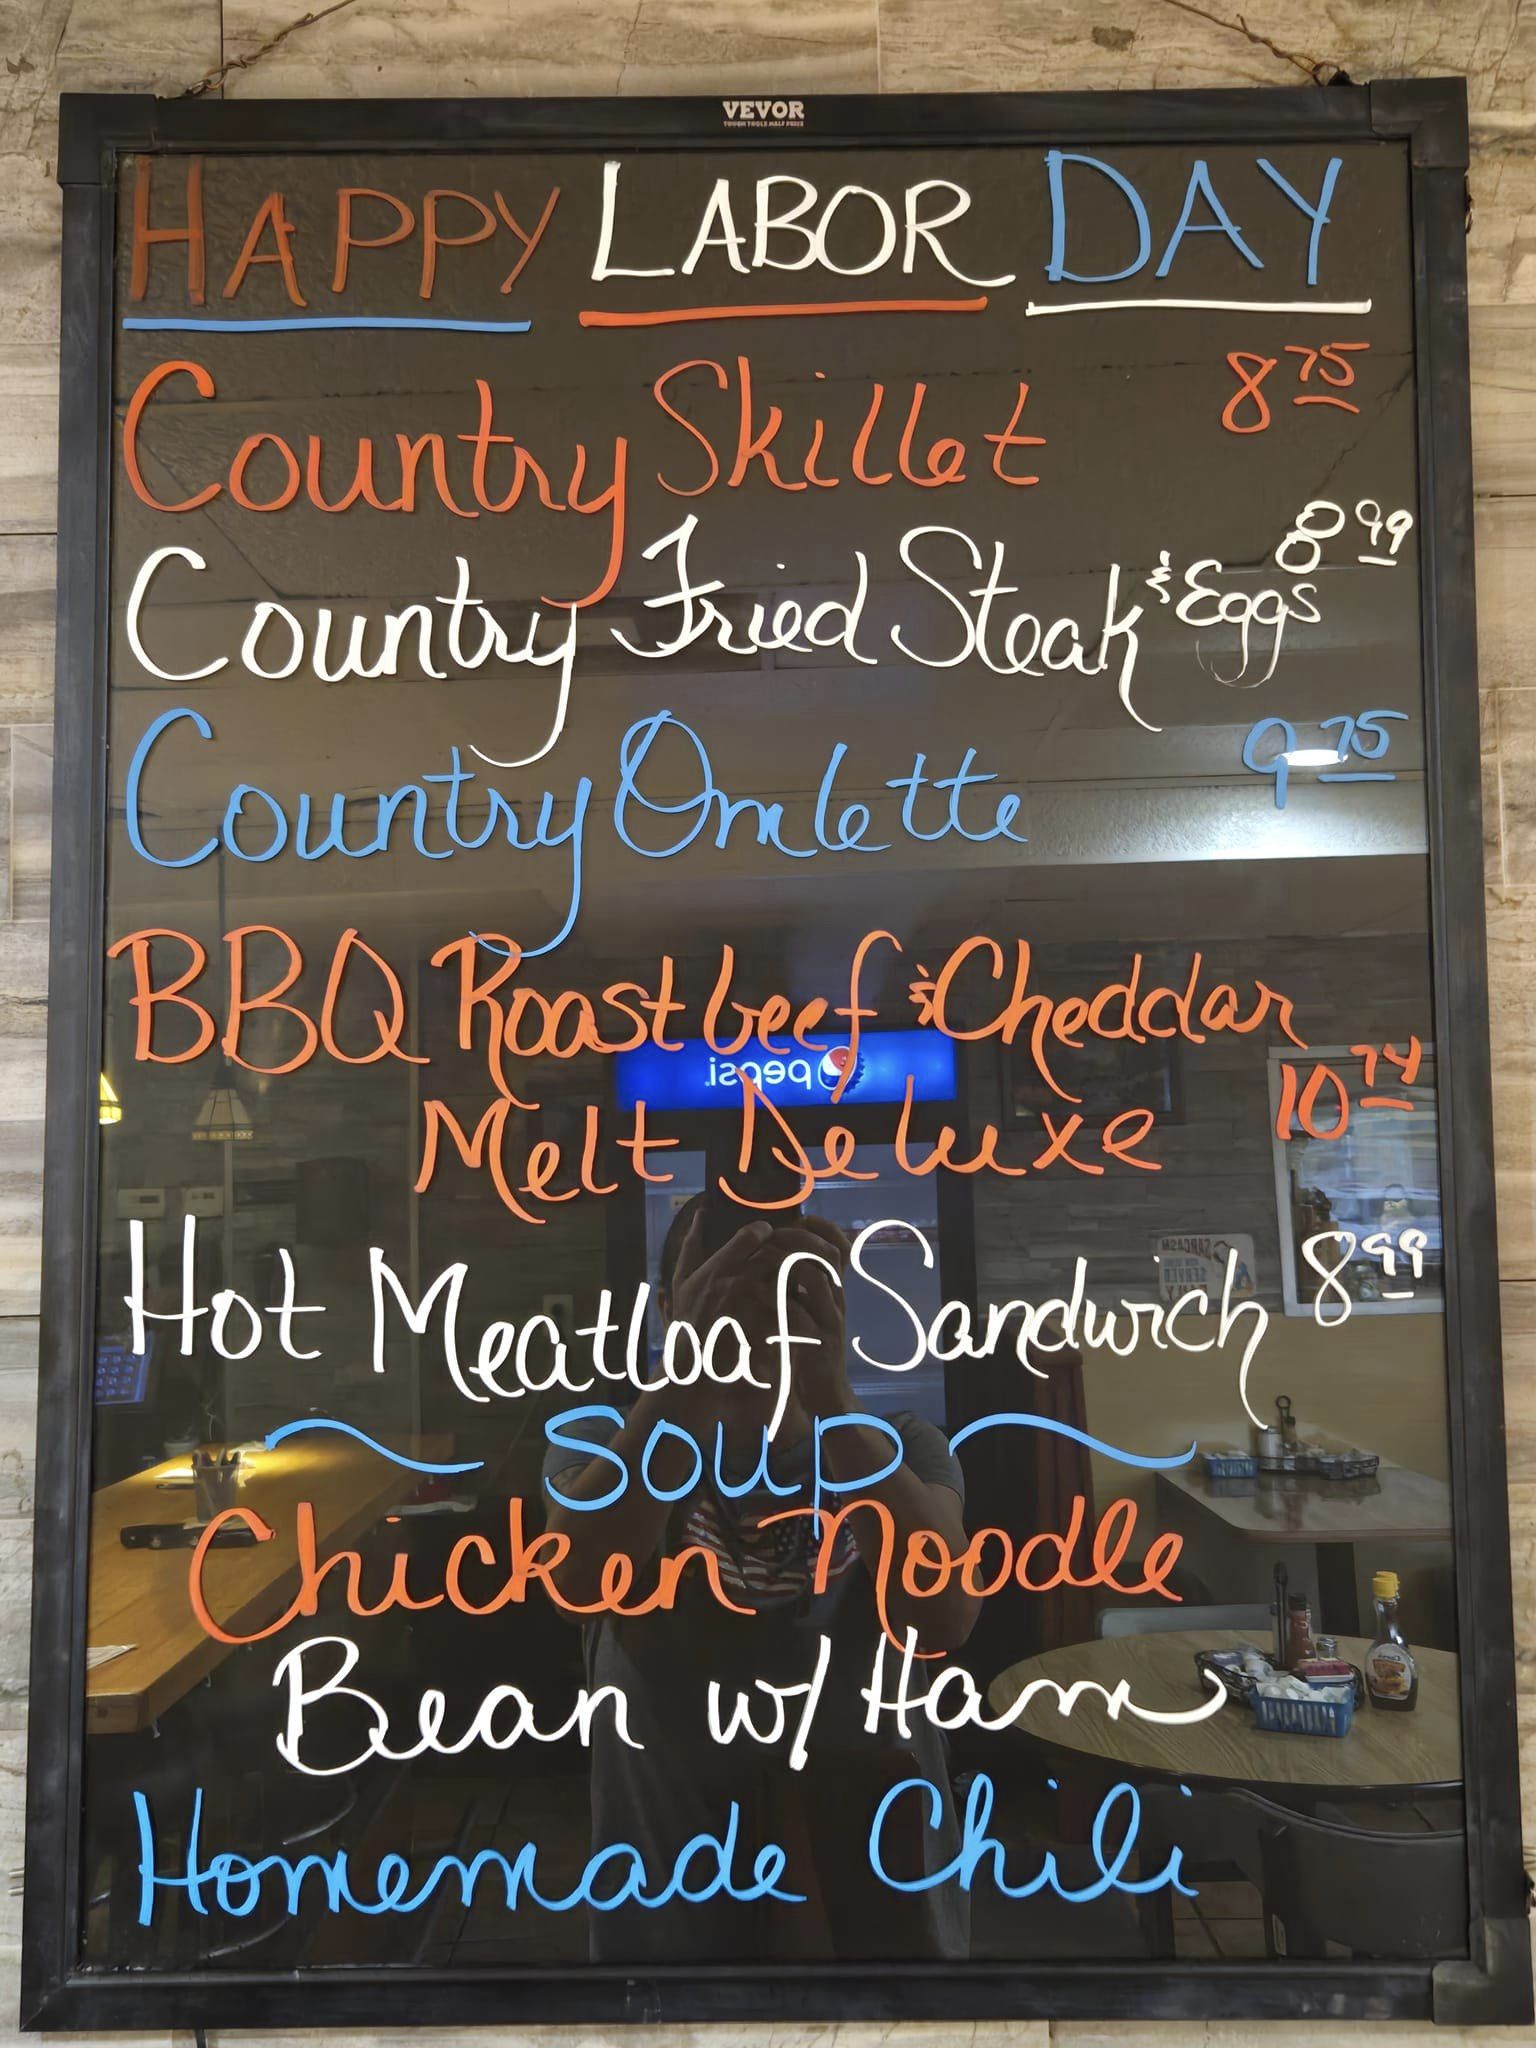 VEVOR
TOUGH TOOLS HALF PRICE
HAPPY LABOR DAY
Country Skillet 8 75
Country Fried Steak & Eggs 8 99
Country Omlette 9 75
BBQ Roast beef & Cheddar
Melt Deluxe 10 74
pepsi
Hot Meatloaf Sandwich 8 99
SARCASM
SERVED
~ SOUP ~
Chicken Noodle
Bean w/ Ham
Homemade Chili